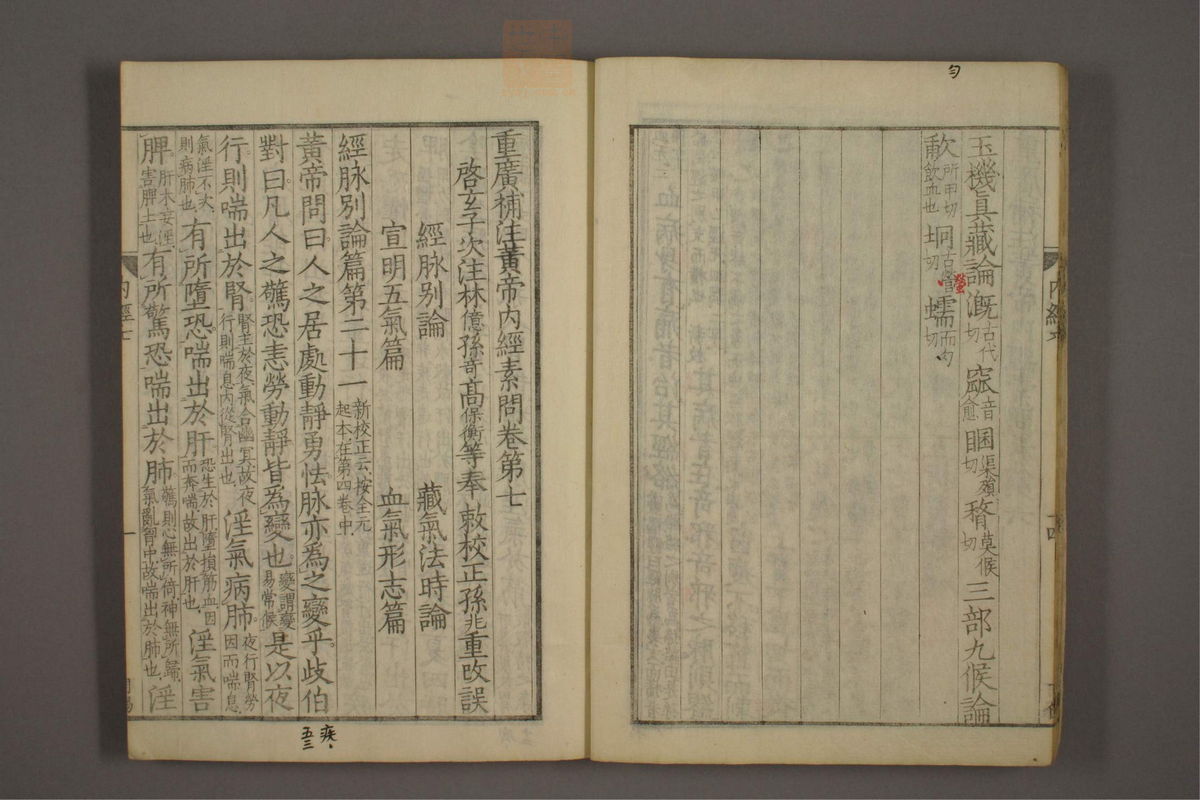 玉機真藏論 溉古代切 窳音愈 䐃渠殞切 瞀莫候切 三部九候論
㽱所甲切飲血也 坰古螢切 蠕而勻切
勻
螢
內經
重廣補注黃帝內經素問卷第七
啓玄子次注林億孫奇高保衡等奉敕校正孫兆重改誤
經脉別論 藏氣法時論
宣明五氣篇 血氣形志篇
經脉別論篇第二十一 新校正云按全元起本在第四卷中
黃帝問曰人之居處動靜勇怯脉亦為之變乎歧伯
對曰凡人之驚恐恚勞動靜皆為變也變謂變易常候是以夜
行則喘出於腎腎主於夜氣合幽冥故夜行則喘息內從腎出也淫氣病肺夜行腎勞因而喘息
氣淫不次則病肺也有所墮恐喘出於肝恐生於肝墮損筋血因而奔喘故出於肝也淫氣害
脾肝木妄淫害脾土也有所驚恐喘出於肺驚則心無所倚神無所歸氣亂胷中故喘出於肺也淫
內經七
一
疾
五三